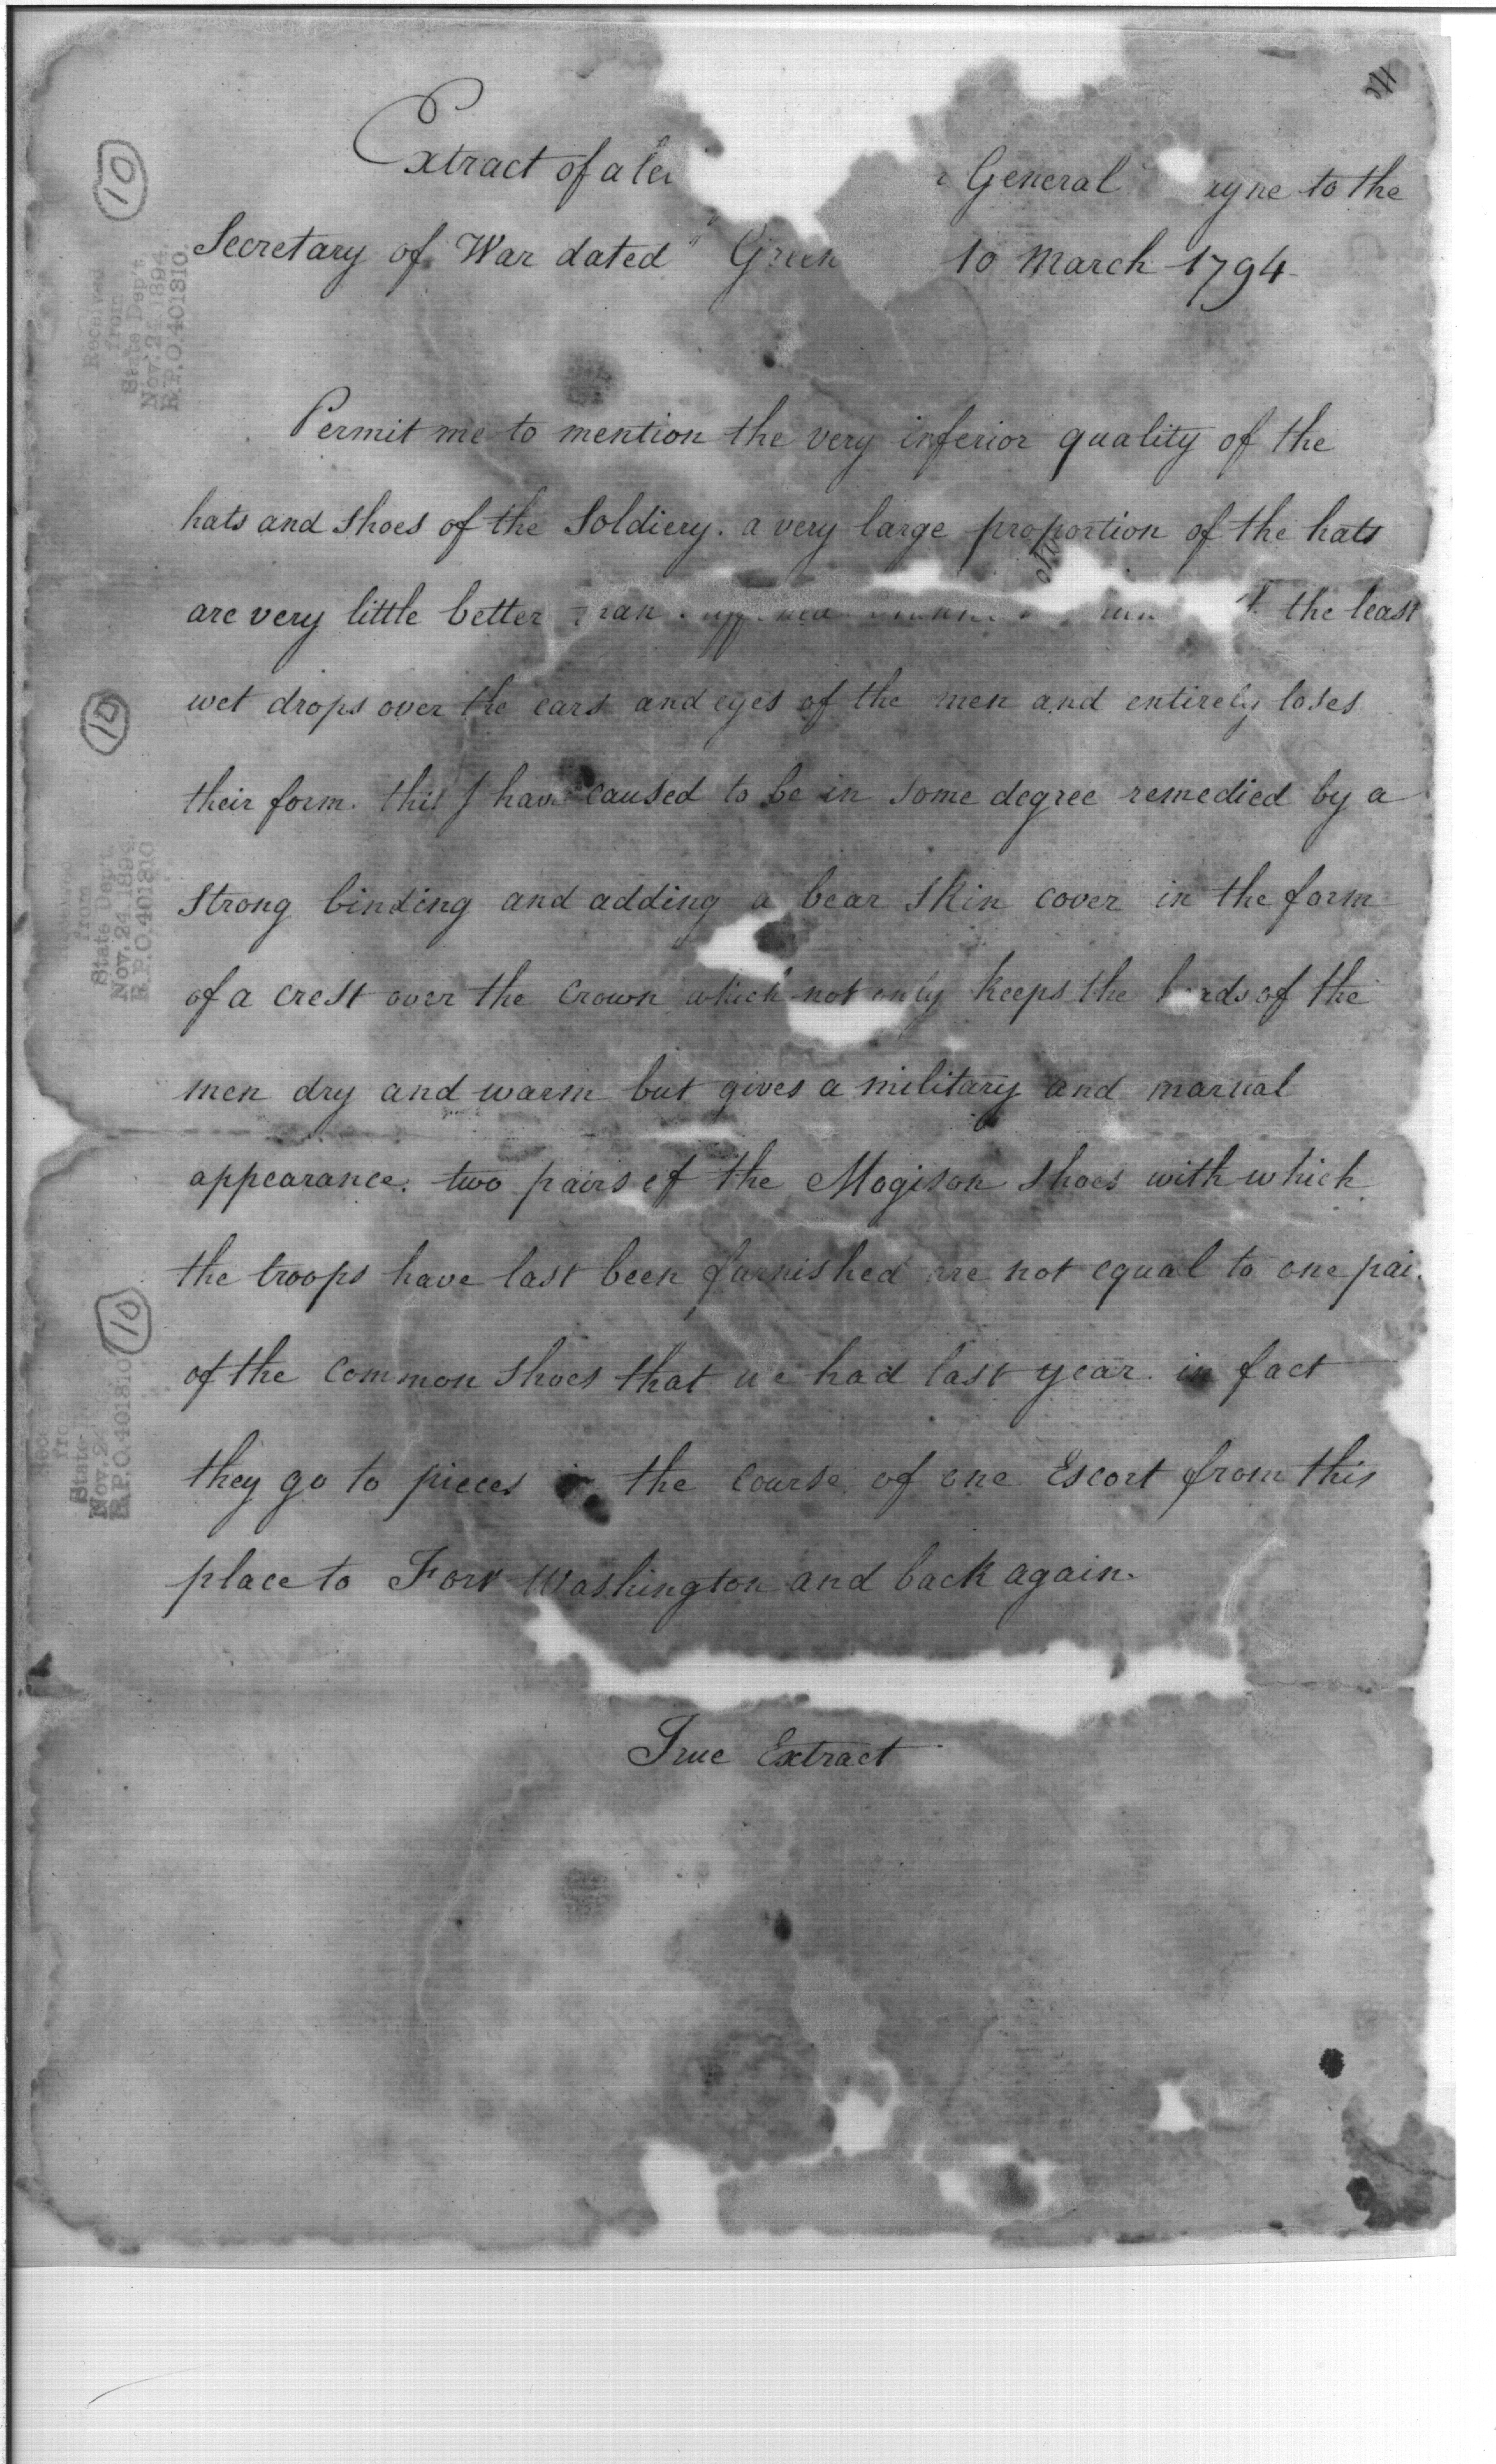 Extract of a General to the
Secretary of War dated Green 10 March 1794
10
Received
from
State Dep't.
Nov. 24. 1894.
R.P.O. 401810.
Permit me to mention the very inferior quality of the
hats and shoes of the Soldiery. a very large proportion of the hats
are very little better the least
wet drops over the ears and eyes of the men and entirely loses
10
their form. this I have caused to be in some degree remedied by a
from
State Dep't.
Nov. 24. 1894.
R.P.O. 401810
strong binding and adding a bear skin cover in the form
of a crest over the crown which not only keeps the of the
men dry and warm but gives a military and martial
appearance. two pairs of the Mogison shoes with which
the troops have last been furnished are not equal to one pai
10
of the common shoes that we had last year. in fact
State
Nov. 24
R.P.O. 401810
they go to pieces the course of one Escort from this
place to Fort Washington and back again.
True Extract